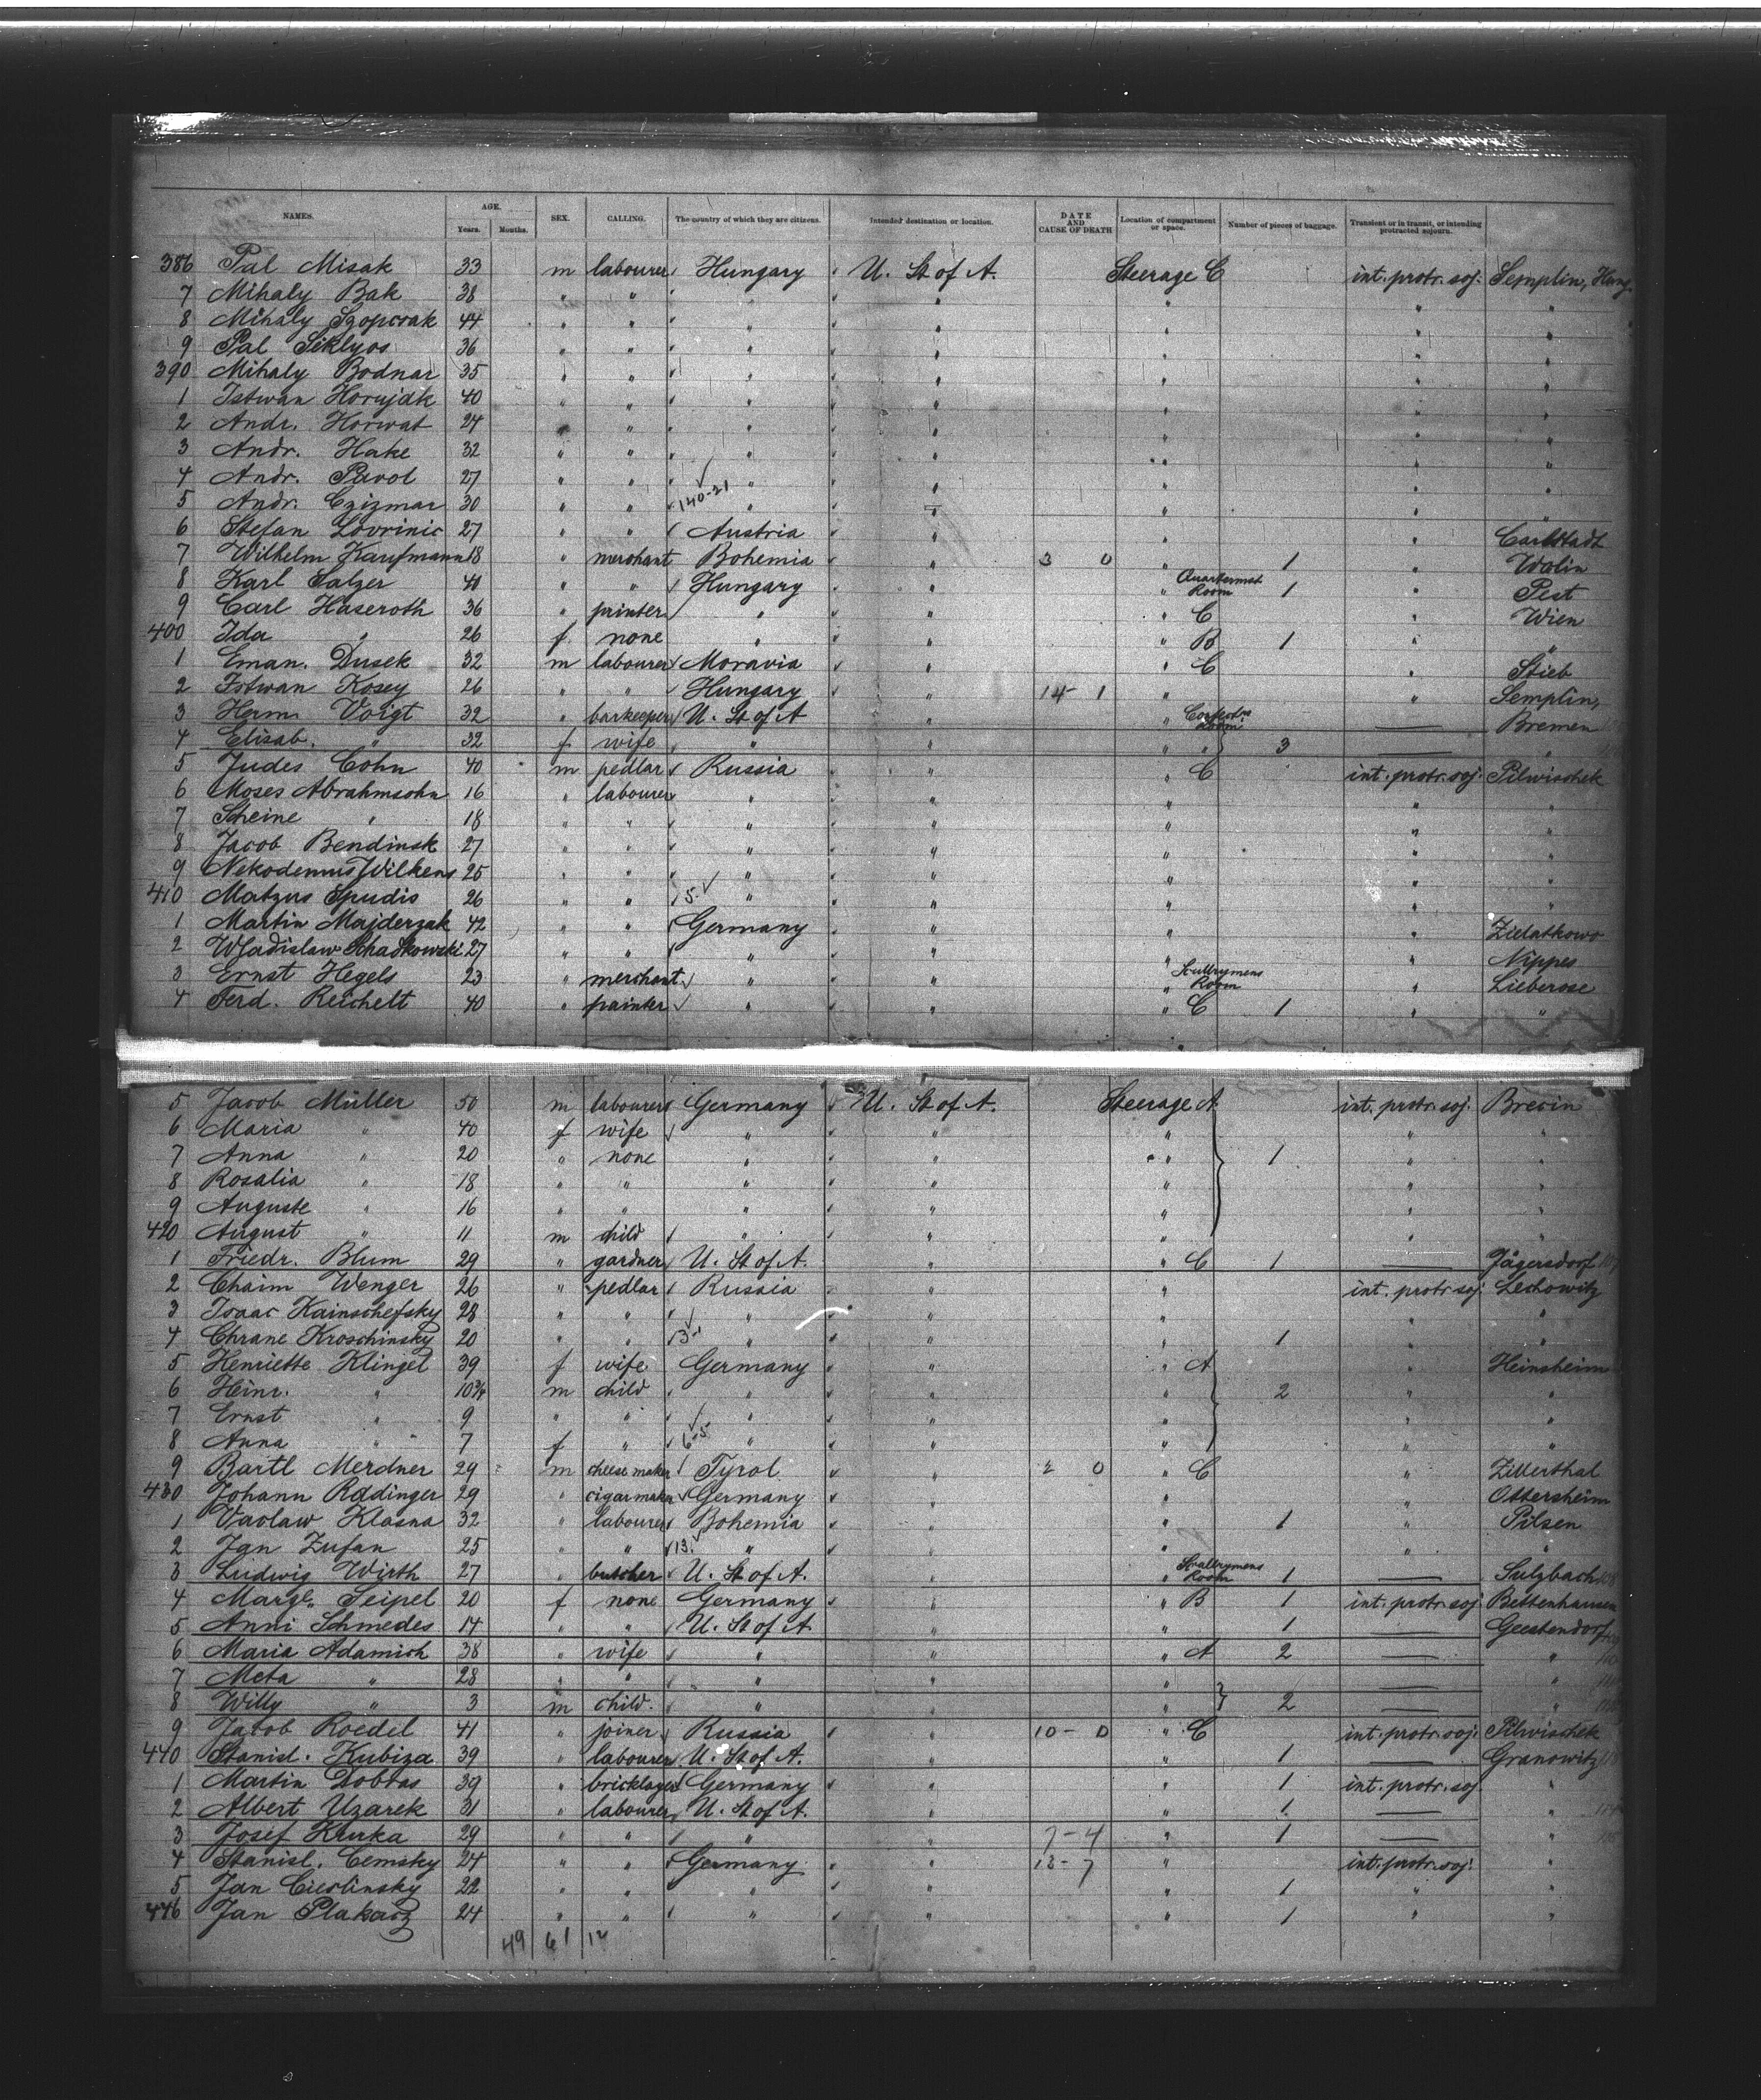 NAMES. AGE. Years. Months. SEX. CALLING. The country of which they are citizens. Intended destination or location. DATE AND CAUSE OF DEATH Location of compartment or space. Number of pieces of baggage. Transient or in transit, or intending protracted sojourn.
386 Pal Misak 33 m labourer Hungary U. St of A. Steerage C int. protr. soj. Semplin, Hung.
7 Mihaly Bak 38 " " " " " " "
8 Mihaly Szopcsak 44 " " " " " " "
9 Pal Siklyos 36 " " " " " " "
390 Mihaly Bodnar 35 " " " " " " "
1 Istwan Horujak 40 " " " " " " "
2 Andr. Horwat 24 " " " " " " "
3 Andr. Hake 32 " " " " " " "
4 Andr. Pavol 27 " " " " " " "
5 Andr. Czizmar 30 " " 140-21 " " " " "
6 Stefan Lovrinic 27 " " Austria " " " Carlstadt
7 Wilhelm Kaufmann 18 " merchant Bohemia " 3 0 " 1 " Wolin
8 Karl Salzer 40 " " Hungary " " Quartermst Room 1 " Pest
9 Carl Haseroth 36 " printer " " " C " Wien
400 Ida " 26 f. none " " " B 1 " "
1 Eman. Dusek 32 m labourer Moravia " " C " Stieb
2 Istwan Kosey 26 " " Hungary " 14- 1 " " Semplin,
3 Herm. Voigt 32 " barkeeper U. St of A " " Room — Bremen
4 Elisab. " 32 f wife " " " " } 3 — "
5 Judes Cohn 40 m pedlar Russia " " C int. protr. soj. Pilwischek
6 Moses Abrahmsohn 16 " labourer " " " " "
7 Scheine " 18 " " " " " " "
8 Jacob Bendinsk 27 " " " " " " "
9 Nekodemus Wilkens 25 " " " " " " "
410 Matzus Spudis 26 " " 5. " " " " "
1 Martin Majderzak 42 " " Germany " " " Zielatkowo
2 Wladislaw Schadkowski 27 " " " " " " Nippes
3 Ernst Hegels 23 " merchant " " " Scullrymens Room " Lieberose
4 Ferd. Reichelt 40 " painter " " " C 1 " "
5 Jacob Müller 50 m labourer Germany U. St of A. Steerage A int. protr. soj. Brecin
6 Maria " 40 f wife " " " " "
7 Anna " 20 " none " " " 1 " "
8 Rosalia " 18 " " " " " " "
9 Auguste " 16 " " " " " " "
420 August " 11 m child " " " " "
1 Friedr. Blum 29 " gardner U. St of A. " " C 1 — Jägersdorf
2 Chaim Wenger 26 " pedlar Russia " " int. protr. soj. Lechowitz
3 Isaac Kainschefsky 28 " " " " " " "
4 Chrane Kroschinsky 20 " " 3- " " " 1 " "
5 Henriette Klingel 39 f wife Germany " " A " Heinsheim
6 Heinr. " 10¾ m child " " " 2 " "
7 Ernst " 9 " " " " " " "
8 Anna " 7 f " 6-5 " " " " "
9 Bartl Merdner 29 m cheese maker Tyrol " 2 0 " C " Zillerthal
430 Johann Rödinger 29 " cigarmaker Germany " " " Ottersheim
1 Vaclaw Klasna 32 " labourer Bohemia " " 1 " Pilsen
2 Jan Zufan 25 " " 13. " " " " "
3 Ludwig Wirth 27 " butcher U. St of A. " " Scullrymens Room 1 — Sulzbach
4 Margt. Seipel 20 f none Germany " " B 1 int. protr. soj. Bettenhausen
5 Anni Schmedes 14 " " U. St of A " " 1 — Geestendorf
6 Maria Adamich 38 " wife " " " A 2 — "
7 Meta " 28 " " " " " — "
8 Willy " 3 m child. " " " } 2 — "
9 Jacob Roedel 41 " joiner Russia " 10 - 0 " C int. protr. soj. Pilwischek
440 Stanisl. Kubiza 39 " labourer U. St of A. " " 1 — Granowitz
1 Martin Dobras 39 " bricklayer Germany " " 1 int. protr. soj. "
2 Albert Uzarek 31 " labourer U. St of A. " " 1 — "
3 Josef Kurka 29 " " " " 7 - 4 " 1 — "
4 Stanisl. Cemsky 24 " " Germany " 13 - 7 " int. protr. soj. "
5 Jan Cieslinsky 22 " " " " " 1 " "
446 Jan Plakacz 24 " " " " " 1 " "
49 61 12